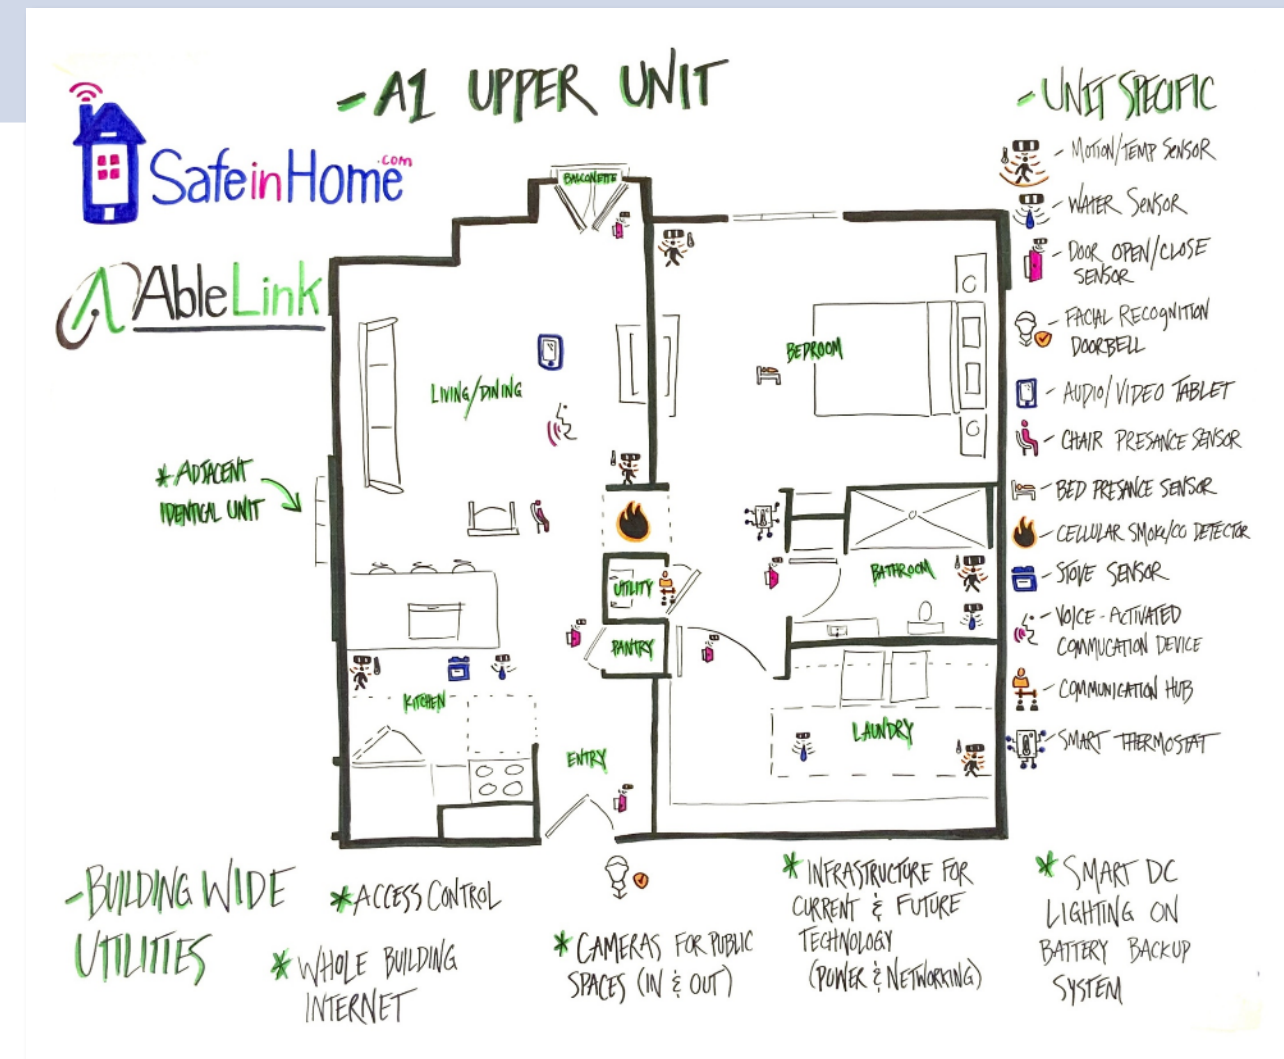 - A1 UPPER UNIT
SafeinHome.com
AbleLink
BALCONETTE
LIVING/DINING
BEDROOM
* ADJACENT
IDENTICAL UNIT
UTILITY
BATHROOM
PANTRY
KITCHEN
ENTRY
LAUNDRY
- UNIT SPECIFIC
- MOTION/TEMP SENSOR
- WATER SENSOR
- DOOR OPEN/CLOSE
SENSOR
- FACIAL RECOGNITION
DOORBELL
- AUDIO/VIDEO TABLET
- CHAIR PRESANCE SENSOR
- BED PRESANCE SENSOR
- CELLULAR SMOKE/CO DETECTOR
- STOVE SENSOR
- VOICE-ACTIVATED
COMMUCATION DEVICE
- COMMUNICATION HUB
- SMART THERMOSTAT
- BUILDING WIDE
UTILITIES
* ACCESS CONTROL
* WHOLE BUILDING
INTERNET
* CAMERAS FOR PUBLIC
SPACES (IN & OUT)
* INFRASTRUCTURE FOR
CURRENT & FUTURE
TECHNOLOGY
(POWER & NETWORKING)
* SMART DC
LIGHTING ON
BATTERY BACKUP
SYSTEM